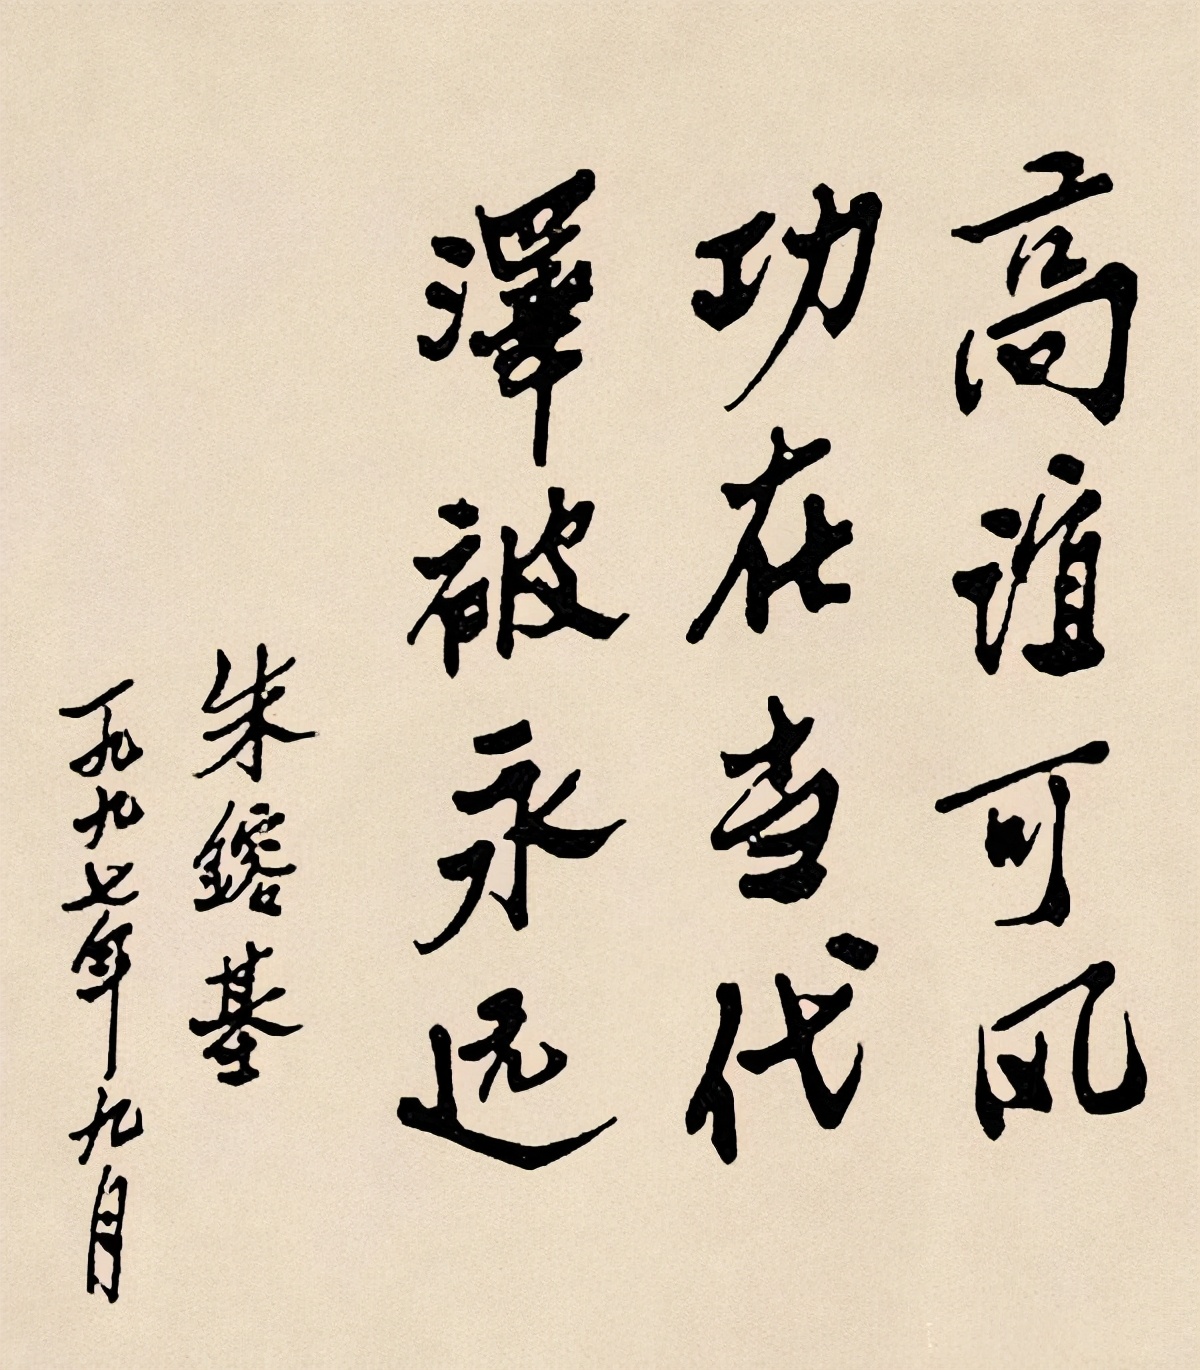 高谊可风
功在当代
澤被永远
朱镕基
一九九七年九月